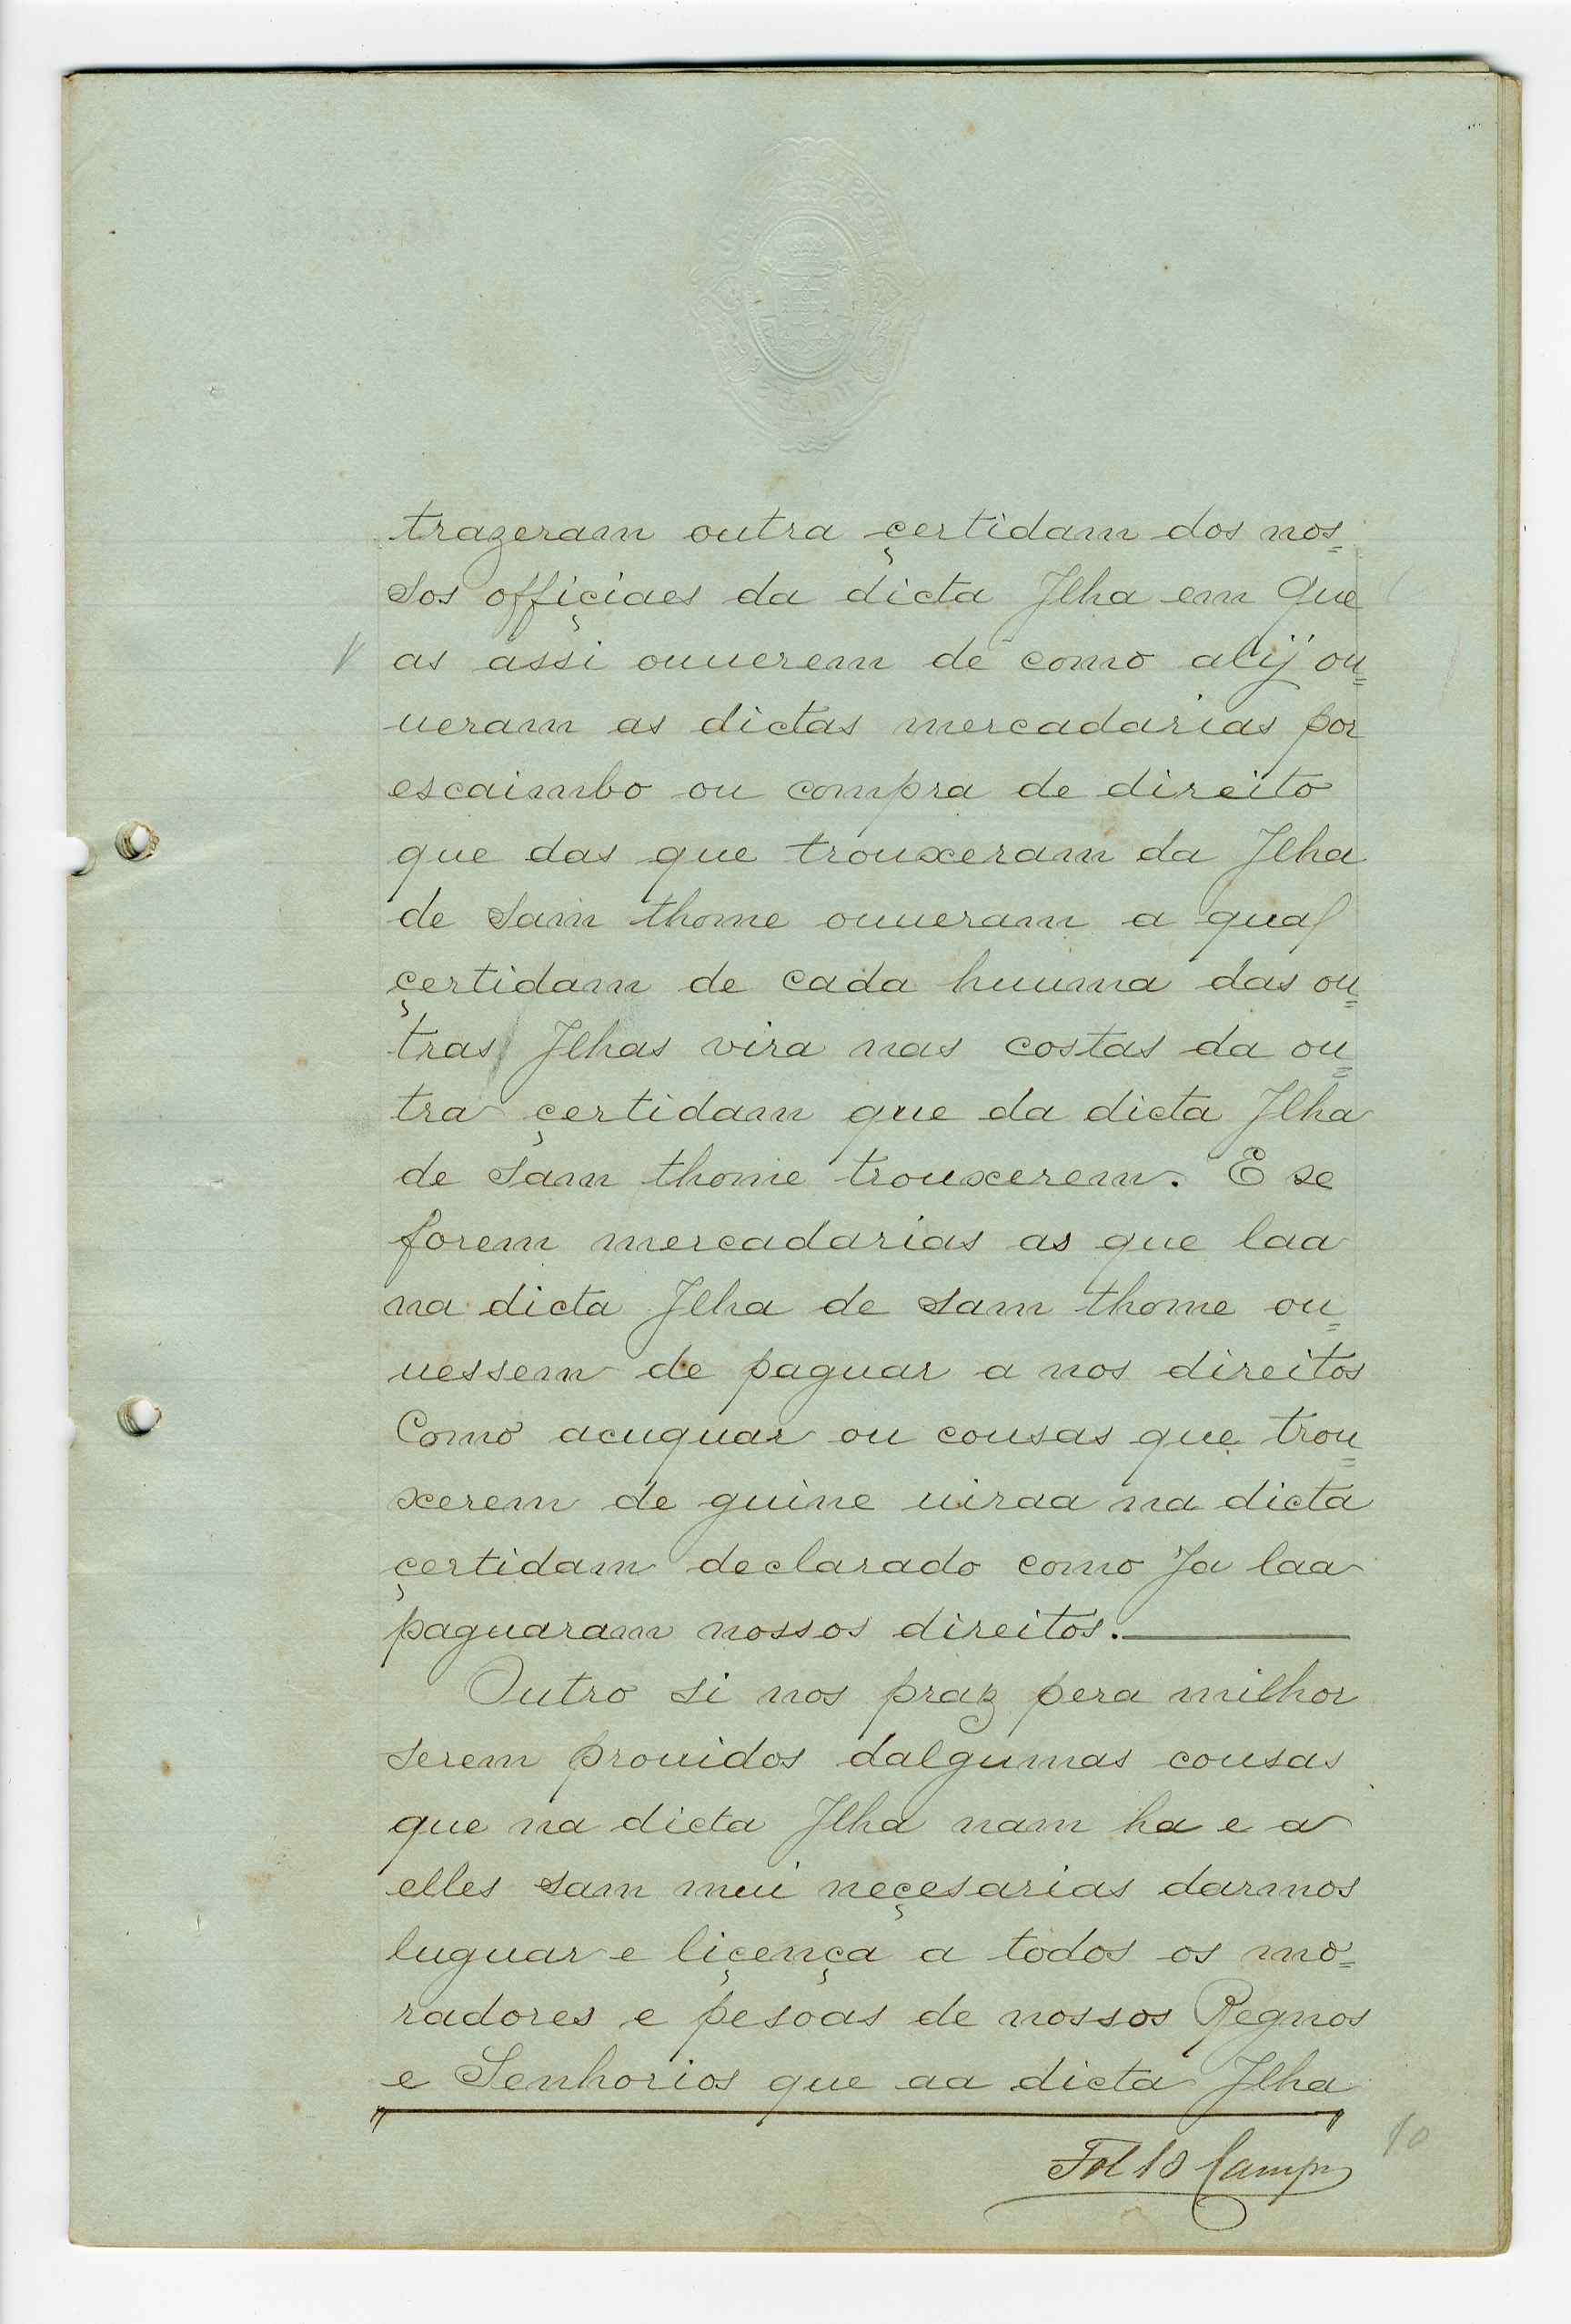 trazeram outra çertidam dos nos=
sos offiçiaes da dicta Jlha em que
as assi ouuerem de como alij ou=
ueram as dictas mercadarias por
escaimbo ou compra de direito
que das que trouxeram da Jlha
de Sam thome ouueram a qual
çertidam de cada huuma das ou=
tras Jlhas vira nas costas da ou=
tra çertidam que da dicta Jlha
de Sam thome trouxerem. E se
forem mercadarias as que laa
na dicta Jlha de Sam thome ou=
uessem de paguar a nos direitos
Como acuquar ou cousas que trou=
xerem de guine uiraa na dicta
çertidam declarado como Ja laa
paguaram nossos direitos.
Outro si nos praz pera milhor
serem prouidos dalgumas cousas
que na dicta Jlha nam ha e a
elles sam mui neçesarias darmos
luguar e liçença a todos os mo=
radores e pesoas de nossos Regnos
e Senhorios que aa dicta Jlha
Fol 10
10